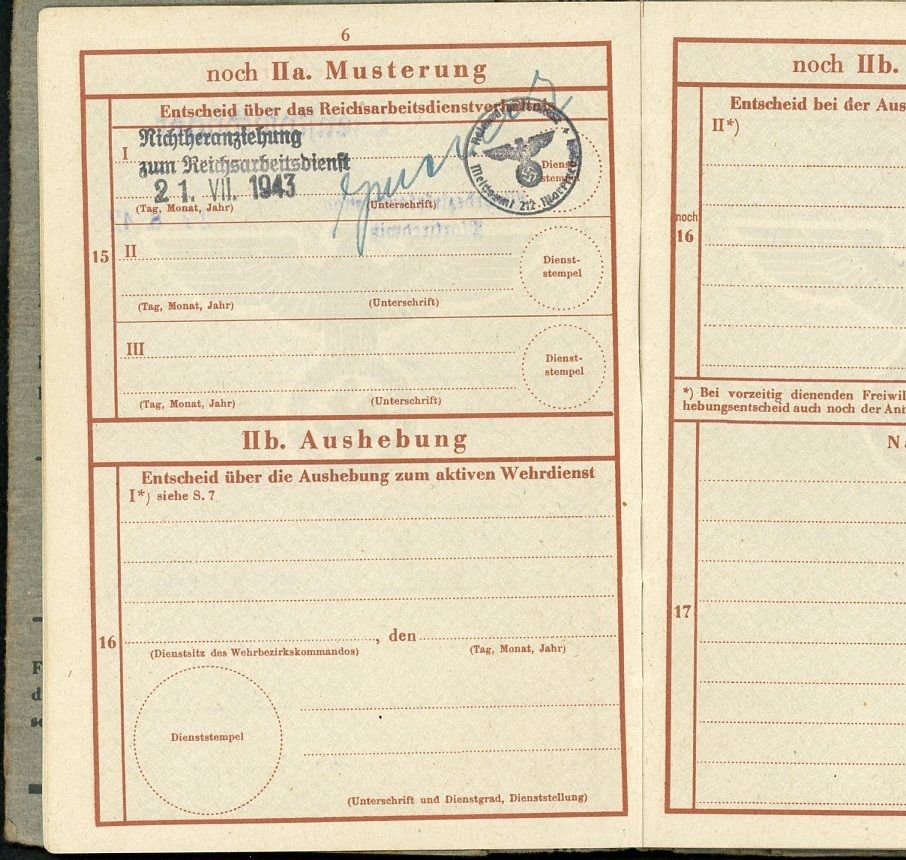 6
noch IIa. Musterung
Entscheid über das Reichsarbeitsdienstverhältnis
I
Nichtheranziehung
zum Reichsarbeitsdienst
21. VII. 1943
(Tag, Monat, Jahr) (Unterschrift)
Dienst-
stempel
15
II
Dienst-
stempel
(Tag, Monat, Jahr) (Unterschrift)
III
Dienst-
stempel
(Tag, Monat, Jahr) (Unterschrift)
IIb. Aushebung
Entscheid über die Aushebung zum aktiven Wehrdienst
I*) siehe S. 7
16
, den
(Dienstsitz des Wehrbezirkskommandos) (Tag, Monat, Jahr)
Dienststempel
(Unterschrift und Dienstgrad, Dienststellung)
noch IIb.
Entscheid bei der Aus
II*)
noch
16
*) Bei vorzeitig dienenden Freiwil
hebungsentscheid auch noch der Ant
N
17